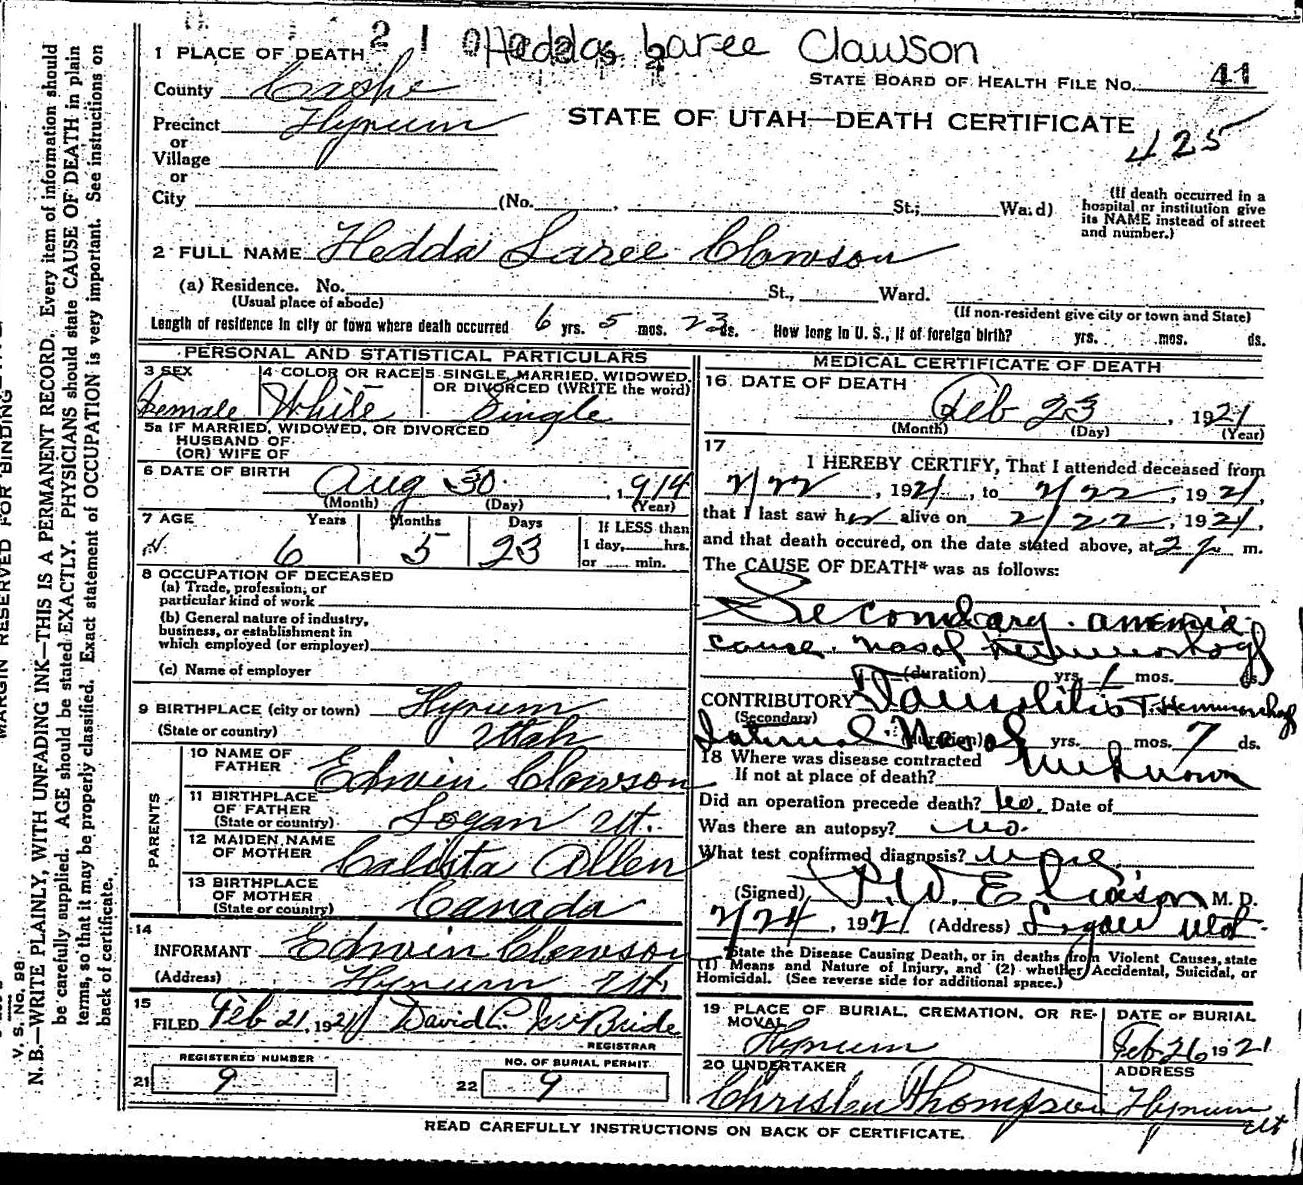 Heddas Laree Clawson
1 PLACE OF DEATH
STATE BOARD OF HEALTH FILE No. 41
County Cache
STATE OF UTAH—DEATH CERTIFICATE
425
Precinct Hyrum
or
Village
or
City (No. , St.; Ward)
(If death occurred in a hospital or institution give its NAME instead of street and number.)
2 FULL NAME Hedda Laree Clawson
(a) Residence. No. St., Ward.
(Usual place of abode) (If non-resident give city or town and State)
Length of residence in city or town where death occurred 6 yrs. 5 mos. 23 ds. How long in U. S., if of foreign birth? yrs. mos. ds.
PERSONAL AND STATISTICAL PARTICULARS
3 SEX Female
4 COLOR OR RACE White
5 SINGLE, MARRIED, WIDOWED, OR DIVORCED (WRITE the word) Single
5a IF MARRIED, WIDOWED, OR DIVORCED
HUSBAND OF
(OR) WIFE OF
6 DATE OF BIRTH Aug 30 , 1914
(Month) (Day) (Year)
7 AGE Years Months Days If LESS than
6 5 23 1 day, hrs.
or min.
8 OCCUPATION OF DECEASED
(a) Trade, profession, or
particular kind of work
(b) General nature of industry,
business, or establishment in
which employed (or employer)
(c) Name of employer
9 BIRTHPLACE (city or town) Hyrum
(State or country) Utah
PARENTS
10 NAME OF FATHER Edwin Clawson
11 BIRTHPLACE OF FATHER (State or country) Logan Ut.
12 MAIDEN NAME OF MOTHER Calista Allen
13 BIRTHPLACE OF MOTHER (State or country) Canada
14
INFORMANT Edwin Clawson
(Address) Hyrum Ut.
15
FILED Feb 21, 1921 David C. McBride
REGISTRAR
REGISTERED NUMBER NO. OF BURIAL PERMIT
21 9 22 9
MEDICAL CERTIFICATE OF DEATH
16 DATE OF DEATH
Feb 23 , 1921
(Month) (Day) (Year)
17
I HEREBY CERTIFY, That I attended deceased from
2/22, 1921, to 2/22, 1921,
that I last saw her alive on 2/22, 1921,
and that death occured, on the date stated above, at 2 m.
The CAUSE OF DEATH* was as follows:
Secondary anemia
cause nasal
(duration) yrs. 1 mos. ds.
CONTRIBUTORY Tonsolitis
(Secondary)
Nasal (duration) yrs. mos. 7 ds.
18 Where was disease contracted
If not at place of death? Unknown
Did an operation precede death? No. Date of
Was there an autopsy? no.
What test confirmed diagnosis? none
(Signed) P.W. Eliason M. D.
2/24, 1921 (Address) Logan Utah
*State the Disease Causing Death, or in deaths from Violent Causes, state
(1) Means and Nature of Injury, and (2) whether Accidental, Suicidal, or
Homicidal. (See reverse side for additional space.)
19 PLACE OF BURIAL, CREMATION, OR REMOVAL Hyrum
DATE OF BURIAL Feb 26 1921
20 UNDERTAKER Christen Thompson
ADDRESS Hyrum Ut
READ CAREFULLY INSTRUCTIONS ON BACK OF CERTIFICATE.
MARGIN RESERVED FOR BINDING
V. S. No. 98
N. B.—WRITE PLAINLY, WITH UNFADING INK—THIS IS A PERMANENT RECORD. Every item of information should
be carefully supplied. AGE should be stated EXACTLY. PHYSICIANS should state CAUSE OF DEATH in plain
terms, so that it may be properly classified. Exact statement of OCCUPATION is very important. See instructions on
back of certificate.